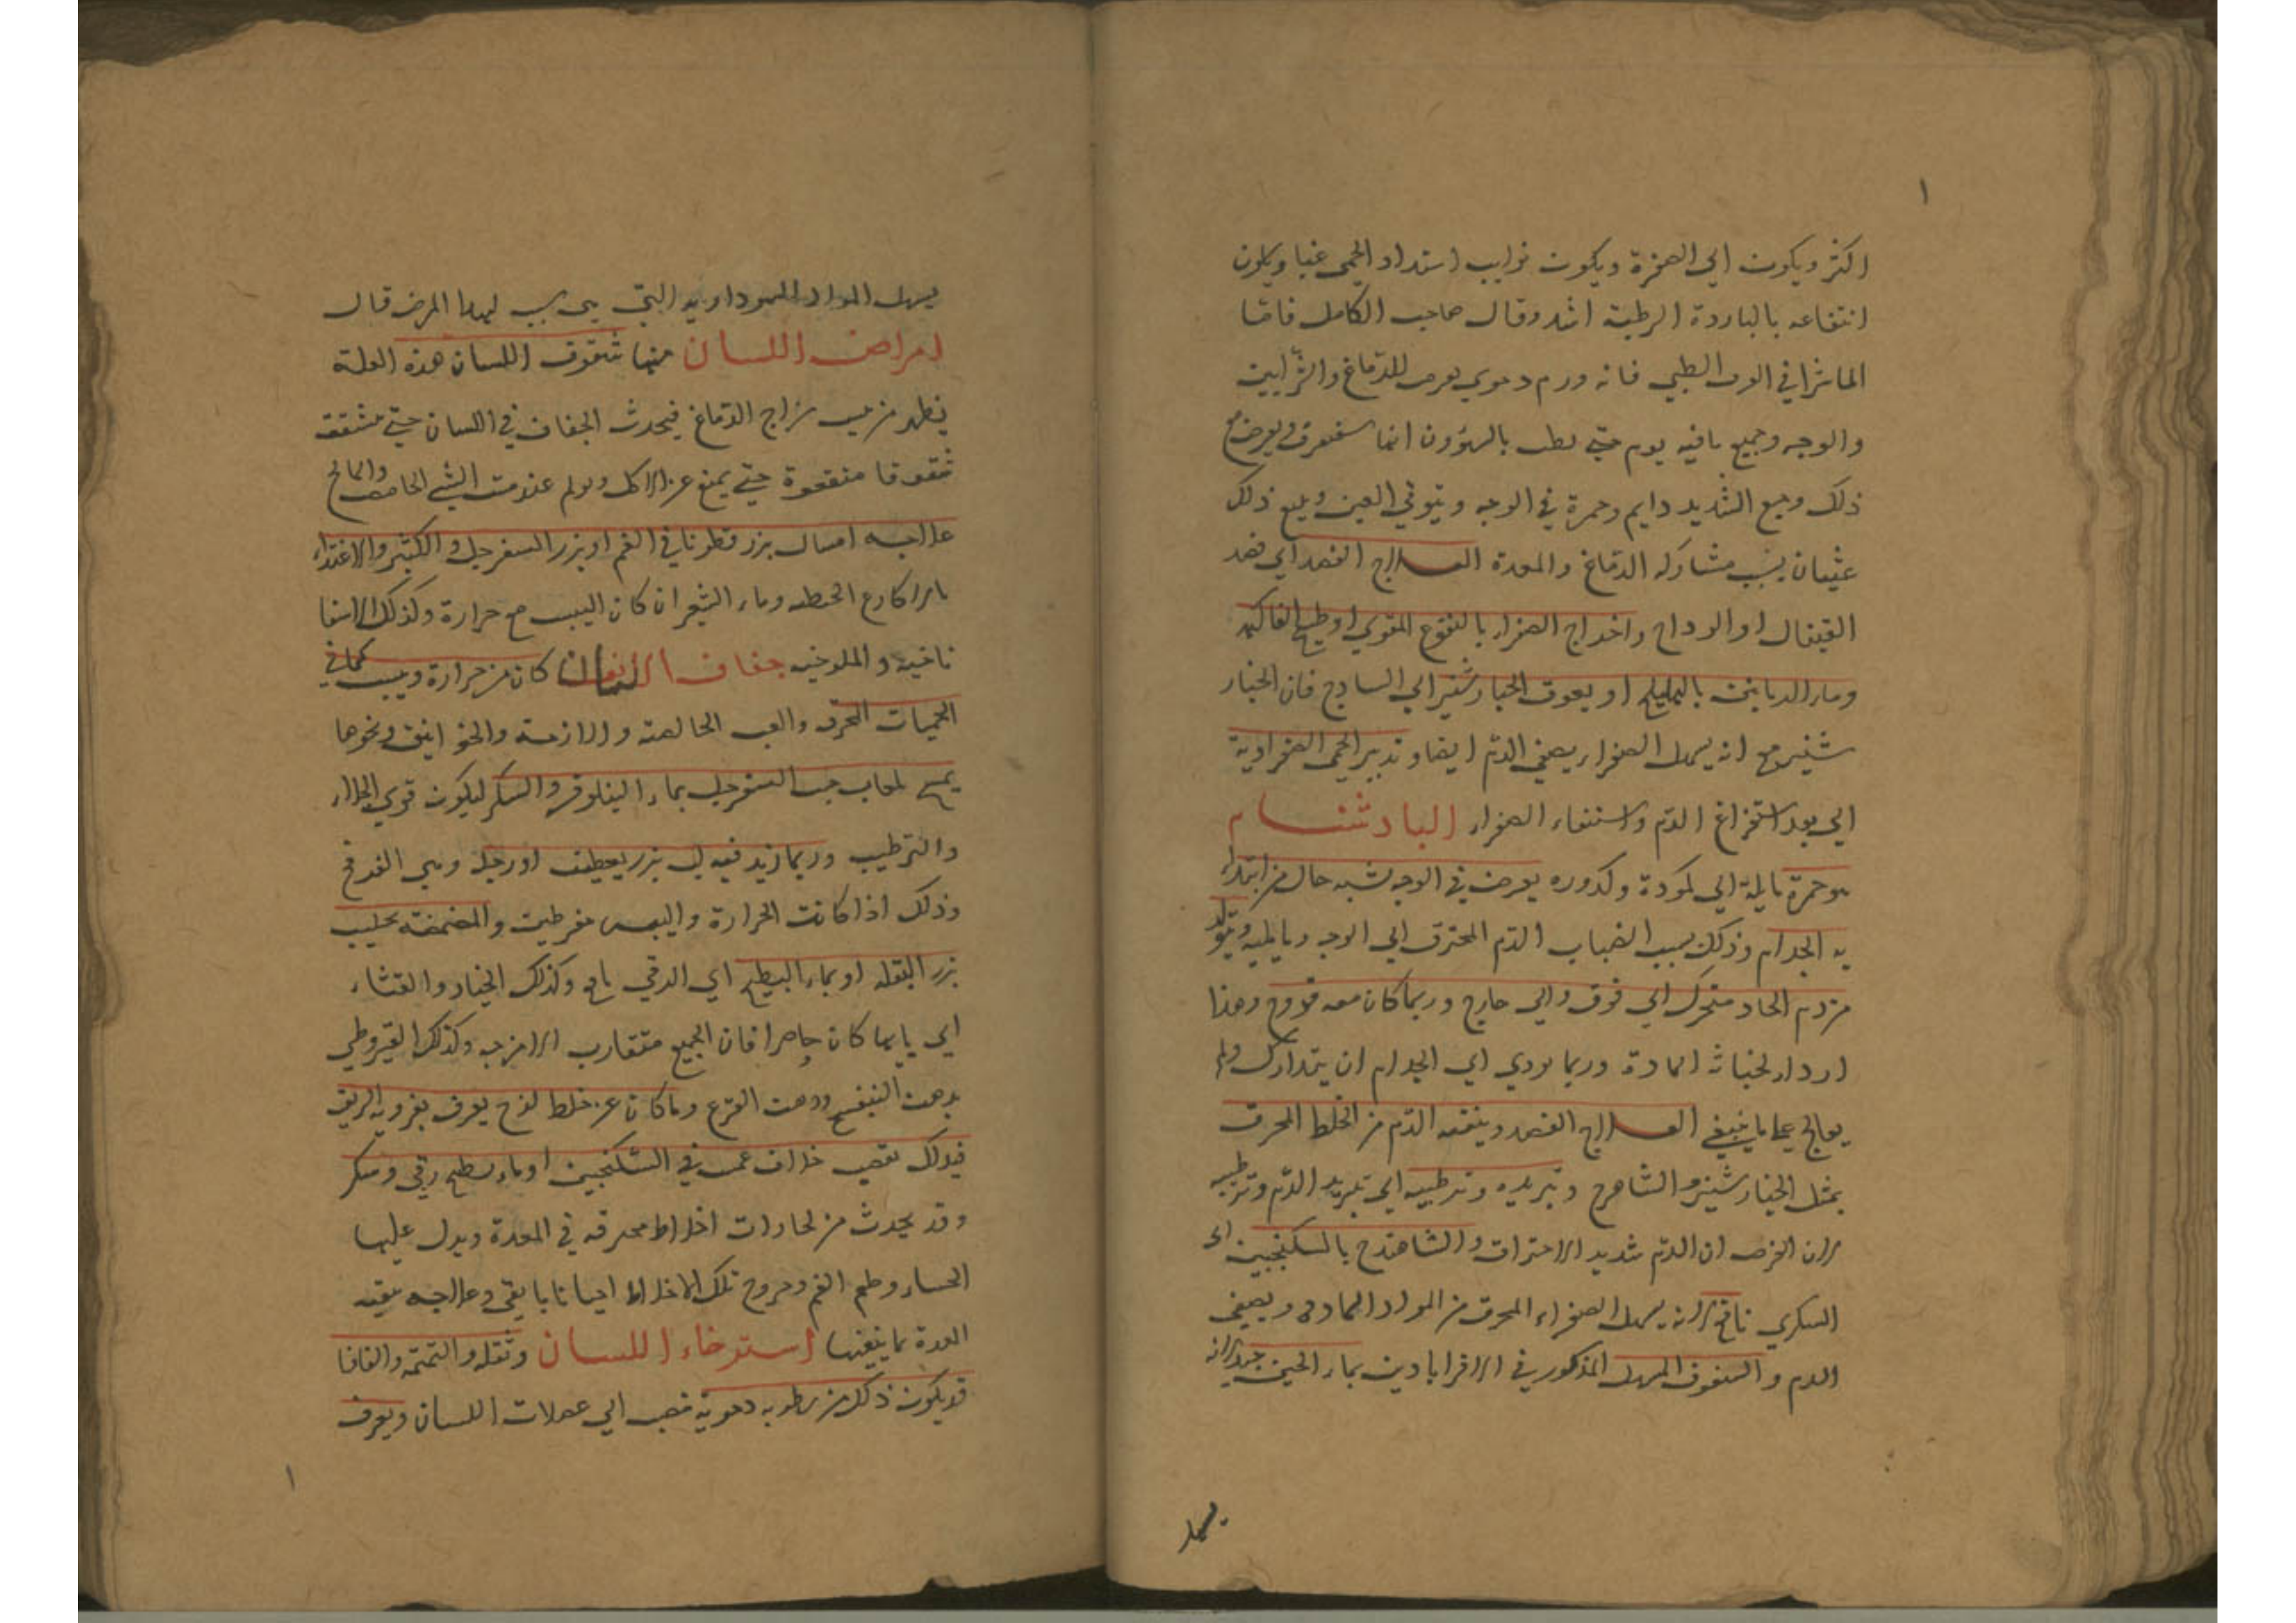 اكثر ويكون الي الصفرة ويكون نوايب اشتداد الحمى غبا ويكون
انتفاعه بالباردة الرطبة اشد وقال صاحب الكامل فاما
الماشرا في العرف الطبي فانه ورم دموي يعرض للدماغ والشرايين
والوجه وجميع ما فيه يوم حتي بالشؤون انها ويعرض مع
ذلك وجع الشديد دايم وحمرة في الوجه و العين و ذلك
غثيان بسبب مشاركه الدماغ والمعدة العلاج الفصد اي فصد
القيفال او الوداج واخراج الصفراء بالنقوع المقوي او طبيخ الفاكهه
وماء الرمانين بالهليلج او بعوق الخيار شنبر اي الساذج فان الخيار
شنبر مع انه يسهل الصفراء يصفي الدم ايضا وتدبير الحمى الصفراوية
اي بعد استفراغ الدم واستنقاء الصفراء البادشنام
هو حمرة مايلة الي كمودة وكدوره يعرض في الوجه يشبه حال من ابتداء
به الجذام وذلك بسبب انصباب الدم المحترق الي الوجه وما يليه ويتولد
من دم الحاد متحرك الي فوق والي خارج وربما كان معه قروح وهذا
ارداء لخباثة المادة وربما يودي اي الجذام ان يتدارك ولم
يعالج علي ما ينبغي العلاج الفصد وينقيه الدم من الخلط المحرق
بمثل الخيار شنبر و الشاهترج وتبريده وترطيبه اي تبريد الدم وترطيبه
لان الغرض ان الدم شديد الاحتراق والشاهترج بالسكنجبين اي
السكري نافع لانه يسهل الصفراء المحرق من المواد الحاده ويصفي
الدم والسفوف المسهل المذكور في الاقراباذين بماء الجبن جيد لانه
يسهل
يسهل المواد السوداويه التي هي سبب لهذا المرض قال
امراض اللسان منها شقوق اللسان هذه العلة
يظهر من يبس مزاج الدماغ فيحدث الجفاف في اللسان حتي متشققه
شقوقا حتي يمنع عن الاكل ويولم عند مس الشي الحامض والمالح
علاجه امساك بزر قطونا في الفم او بزر السفرجل و الكثير والاغتذاء
بالاكارع الحنطه وماء الشعير ان كان اليبس مع حرارة وكذلك الاسفا
ناخيه والملوخيه جفاف اللسان كان من حرارة ويبس كما في
الحميات المحرقه والغب الخالصة و اللازمة و ونحوها
يمسح لعاب حب السفرجل بماء النيلوفر والسكر ليكون قوي الجلاء
والترطيب وربما زيد فيه لب بزر او رجله وهي الفرفخ
وذلك اذا كانت الحرارة واليبس مفرطين والمضمضه بحليب
بزر البقله او بماء البطيخ اي الرقي نافع وكذلك الخيار والقثاء
اي يايها كان حاضرا فان الجميع متقارب الامزجه وكذلك القيروطي
بدهن البنفسج ودهن القرع وما كان عن خلط لزج يعرف بغروية الريق
فيدلك بقضيب خلاف غمس في السكنجبين او ماء بطيخ رقي وسكر
وقد يحدث من بخارات اخلاط محرقه في المعدة ويدل عليها
الجشاء وطعم الفم وخروج تلك الاخلاط احيانا بالقي وعلاجه تنقيه
المعدة بما ينقيها استرخاء اللسان وثقله والتمتمه والفافا
قد يكون ذلك من رطوبه دموية تنصب الي عضلات اللسان ويعرف